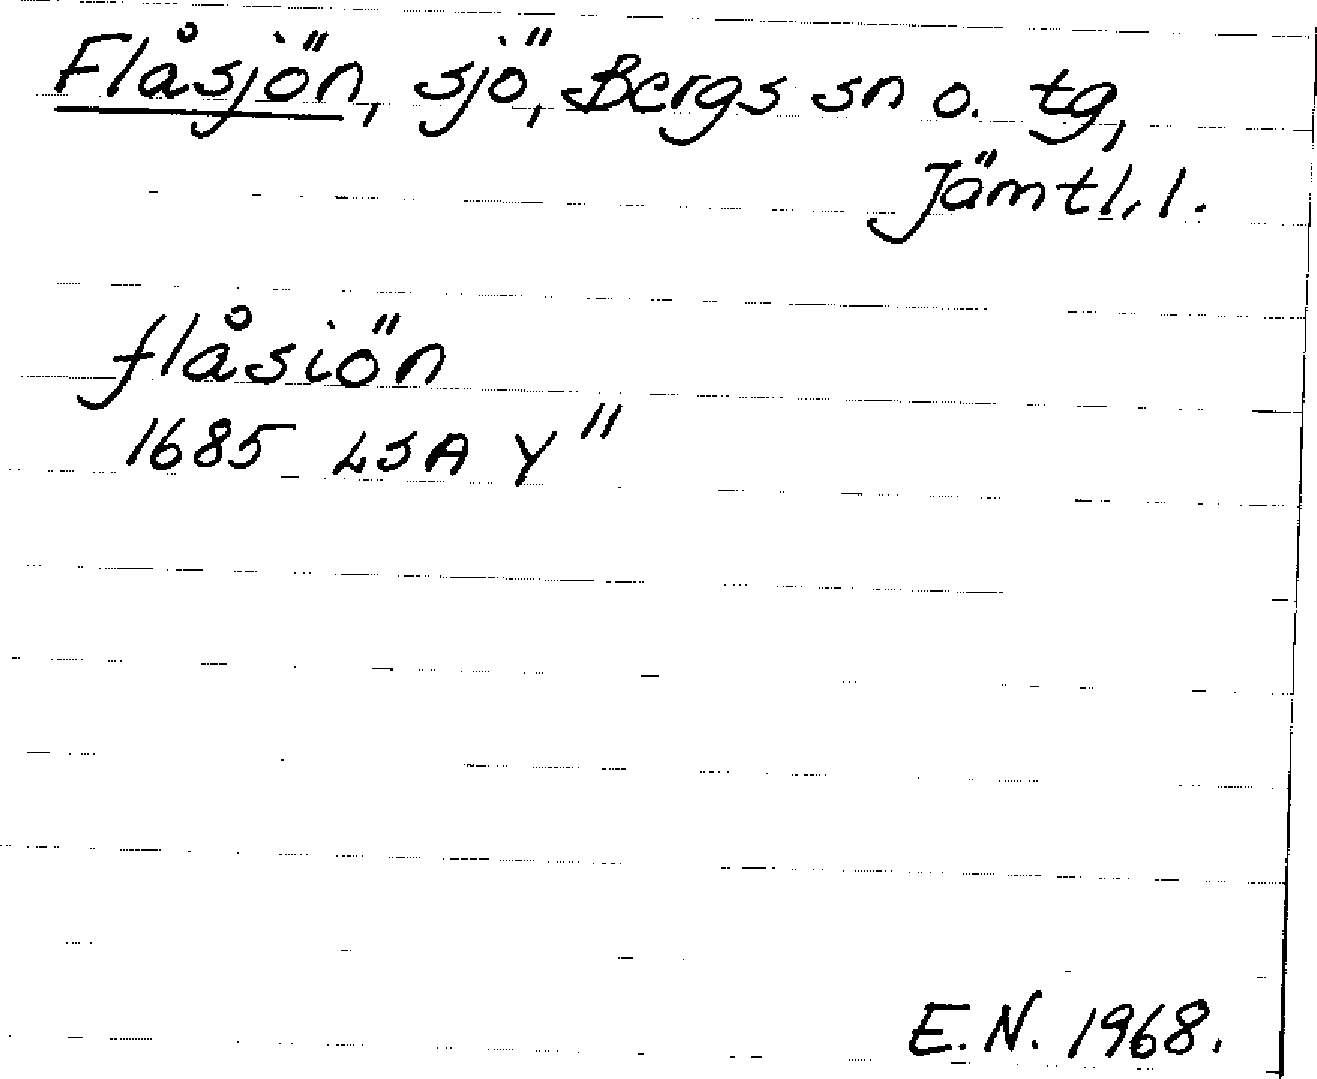 Flåsjön, sjö, Bergs sn o. tg,
Jämtl. l.
flåsiön
1685 LSA Y"
E.N. 1968.